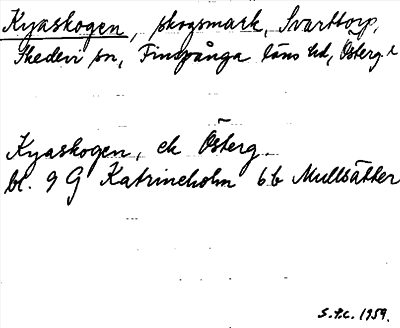 Kyaskogen, skogsmark, Svarttorp,
Skedevi sn, Finspånga läns hd, Österg. l
Kyaskogen, ek Österg.
bl. 9 G Katrineholm 6b Mullsätter
S.P.C. 1959.